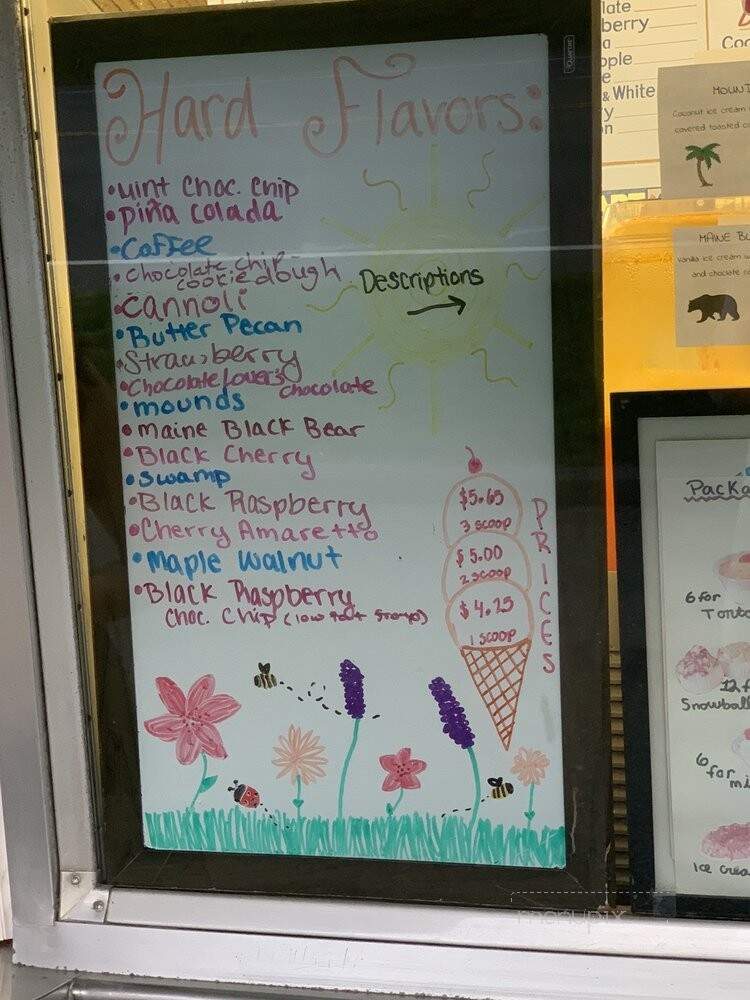 Hard Flavors:
•Mint Choc. Chip
•piña colada
•Coffee
•chocolate chip-
cookie dough
•Cannoli
•Butter Pecan
•Strawberry
•Chocolate Lover's
Chocolate
•mounds
•Maine Black Bear
•Black Cherry
•Swamp
•Black Raspberry
•Cherry Amaretto
•Maple Walnut
•Black Raspberry
Choc. Chip
Descriptions
→
$5.65
3 scoop
$5.00
2 scoop
$4.25
1 scoop
PRICES
Quartet
late
berry
ple
& White
Coconut ice cream
covered toasted
MAINE BL
vanilla ice cream
Packa
6 for
12 f
Snowball
6 for
Ice crea
menupix